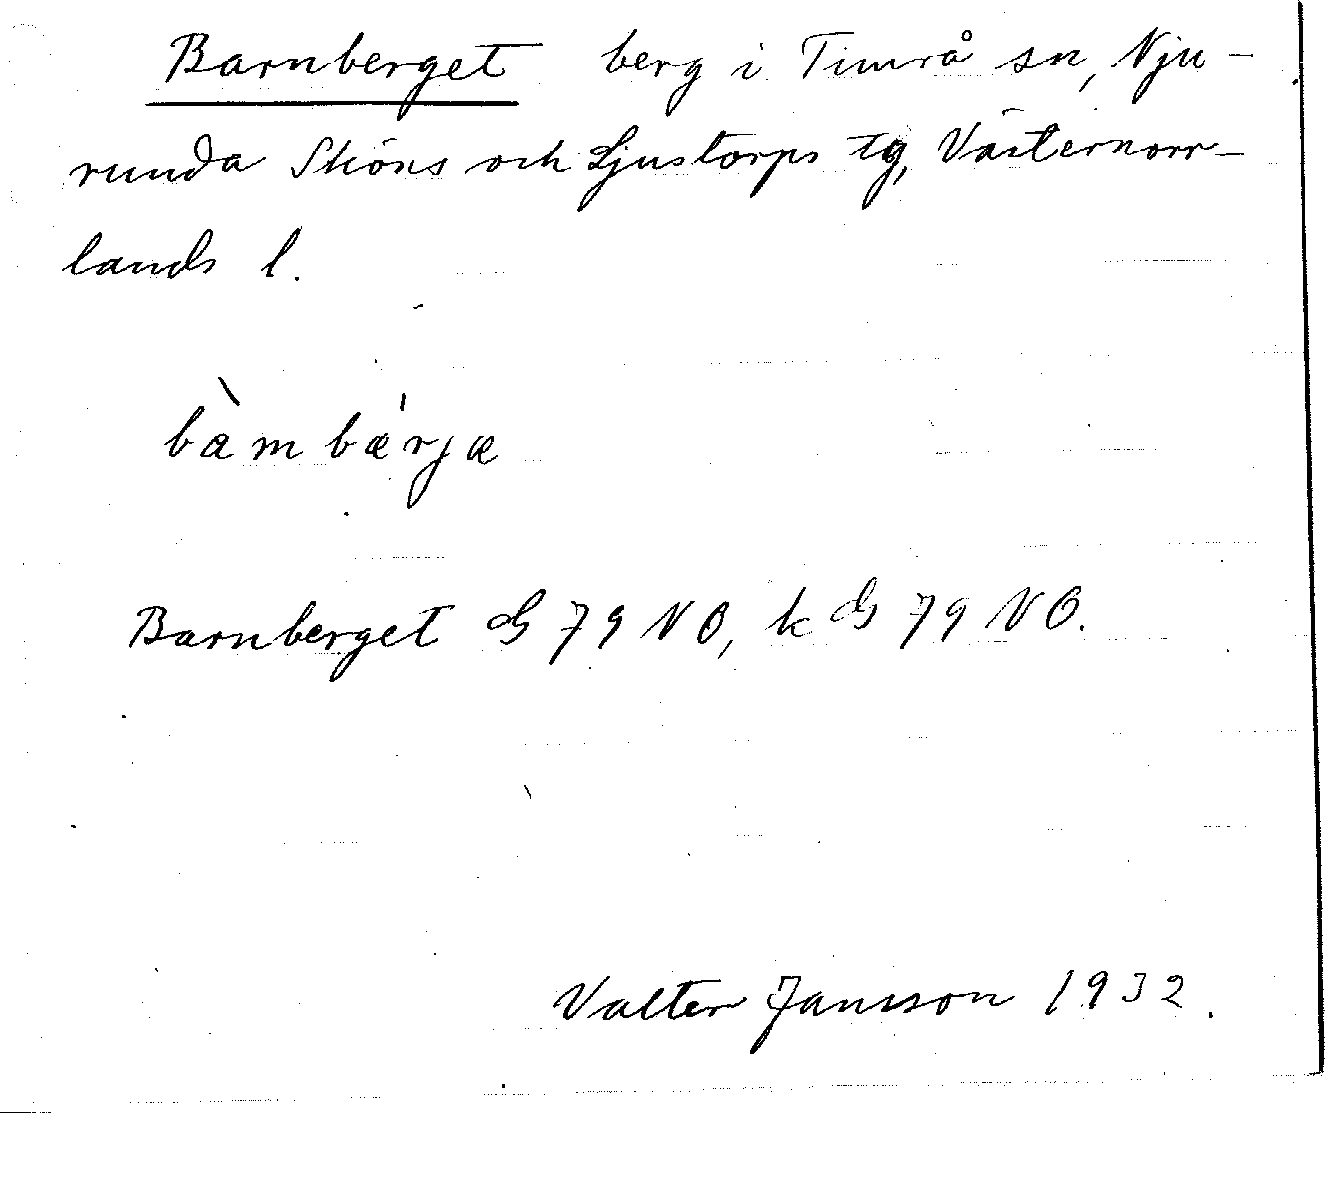 Barnberget berg i Timrå sn, Nju-
runda Sköns och Ljustorps tg, Västernorr-
lands l.
bàmbǽrjæ
Barnberget G 79 NO, k G 79 NO.
Valter Jansson 1932.